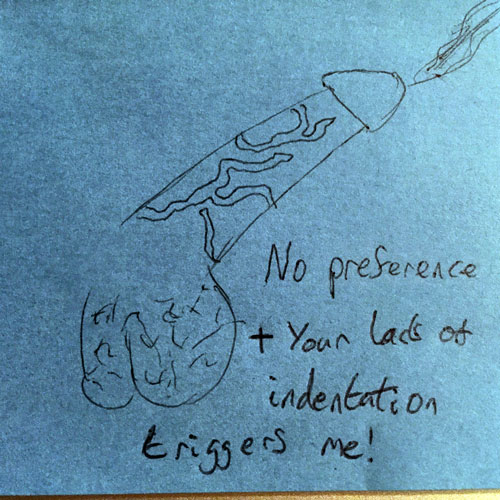 No preference
+ Your lack of
indentation
triggers me!